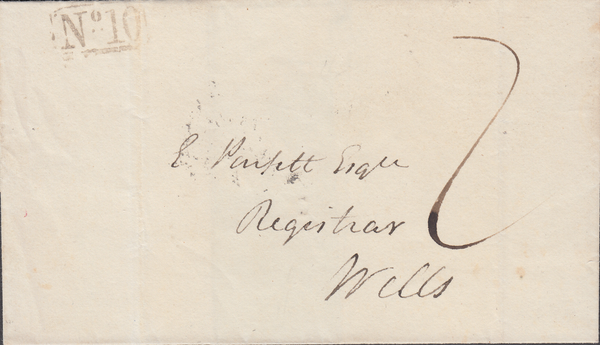 No 10
E Parfitt Esqre
Registrar
Wells